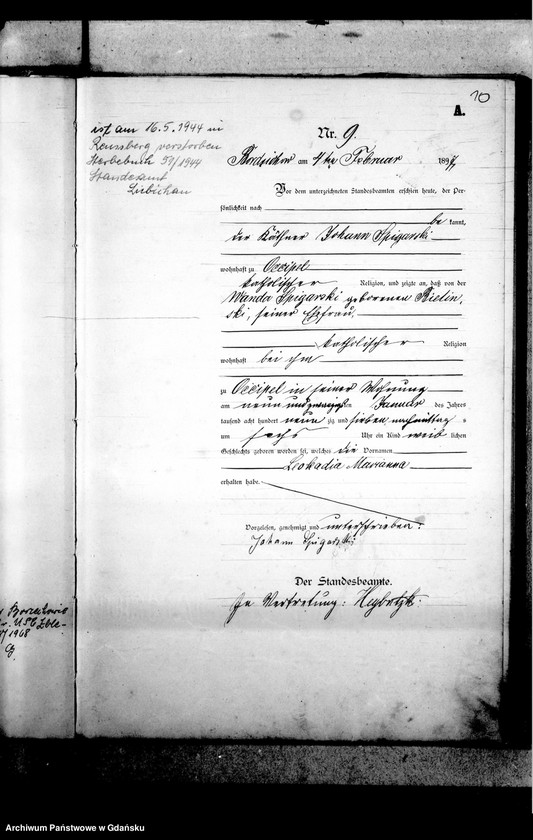 10
A.
ist am 16.5.1944 in
verstorben
Sterbebuch 59/1944
Standesamt
Liebichau
Nr. 9.
am 4ten Februar 1897
Vor dem unterzeichneten Standesbeamten erschien heute, der Per-
sönlichkeit nach
be kannt,
der Käthner Johann Spigarski
wohnhaft zu Occipel
katholischer Religion, und zeigte an, daß von der
Wanda Spigarski geborenen Bielin-
ski, seiner Ehefrau,
katholischer Religion
wohnhaft bei ihm
zu Occipel in seiner Wohnung
am neun und zwanzigsten Januar des Jahres
tausend acht hundert neun zig und sieben nachmittag s
um sechs Uhr ein Kind weib lichen
Geschlechts geboren worden sei, welches die Vornamen
Leokadia Marianna
erhalten habe.
Vorgelesen, genehmigt und unterschrieben.
Johann Spigarski
Der Standesbeamte.
In Vertretung:
USC
1968
Archiwum Państwowe w Gdańsku